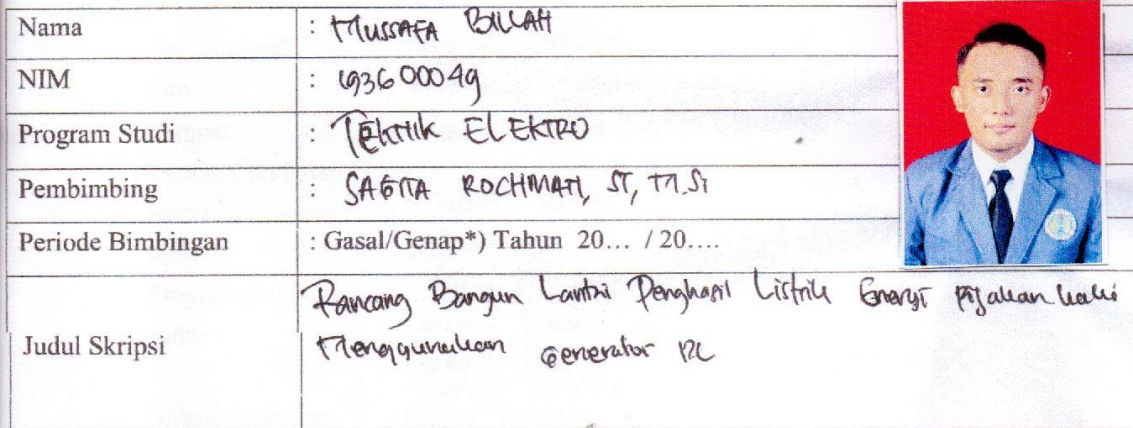 Nama : Mussafa Billah
NIM : 69360049
Program Studi : Teknik Elektro
Pembimbing : Sagita Rochmati, ST, M.Si
Periode Bimbingan : Gasal/Genap*) Tahun 20... / 20....
Rancang Bangun Lantai Penghasil Listrik Energi Pijakan kaki
Judul Skripsi Menggunakan Generator DC